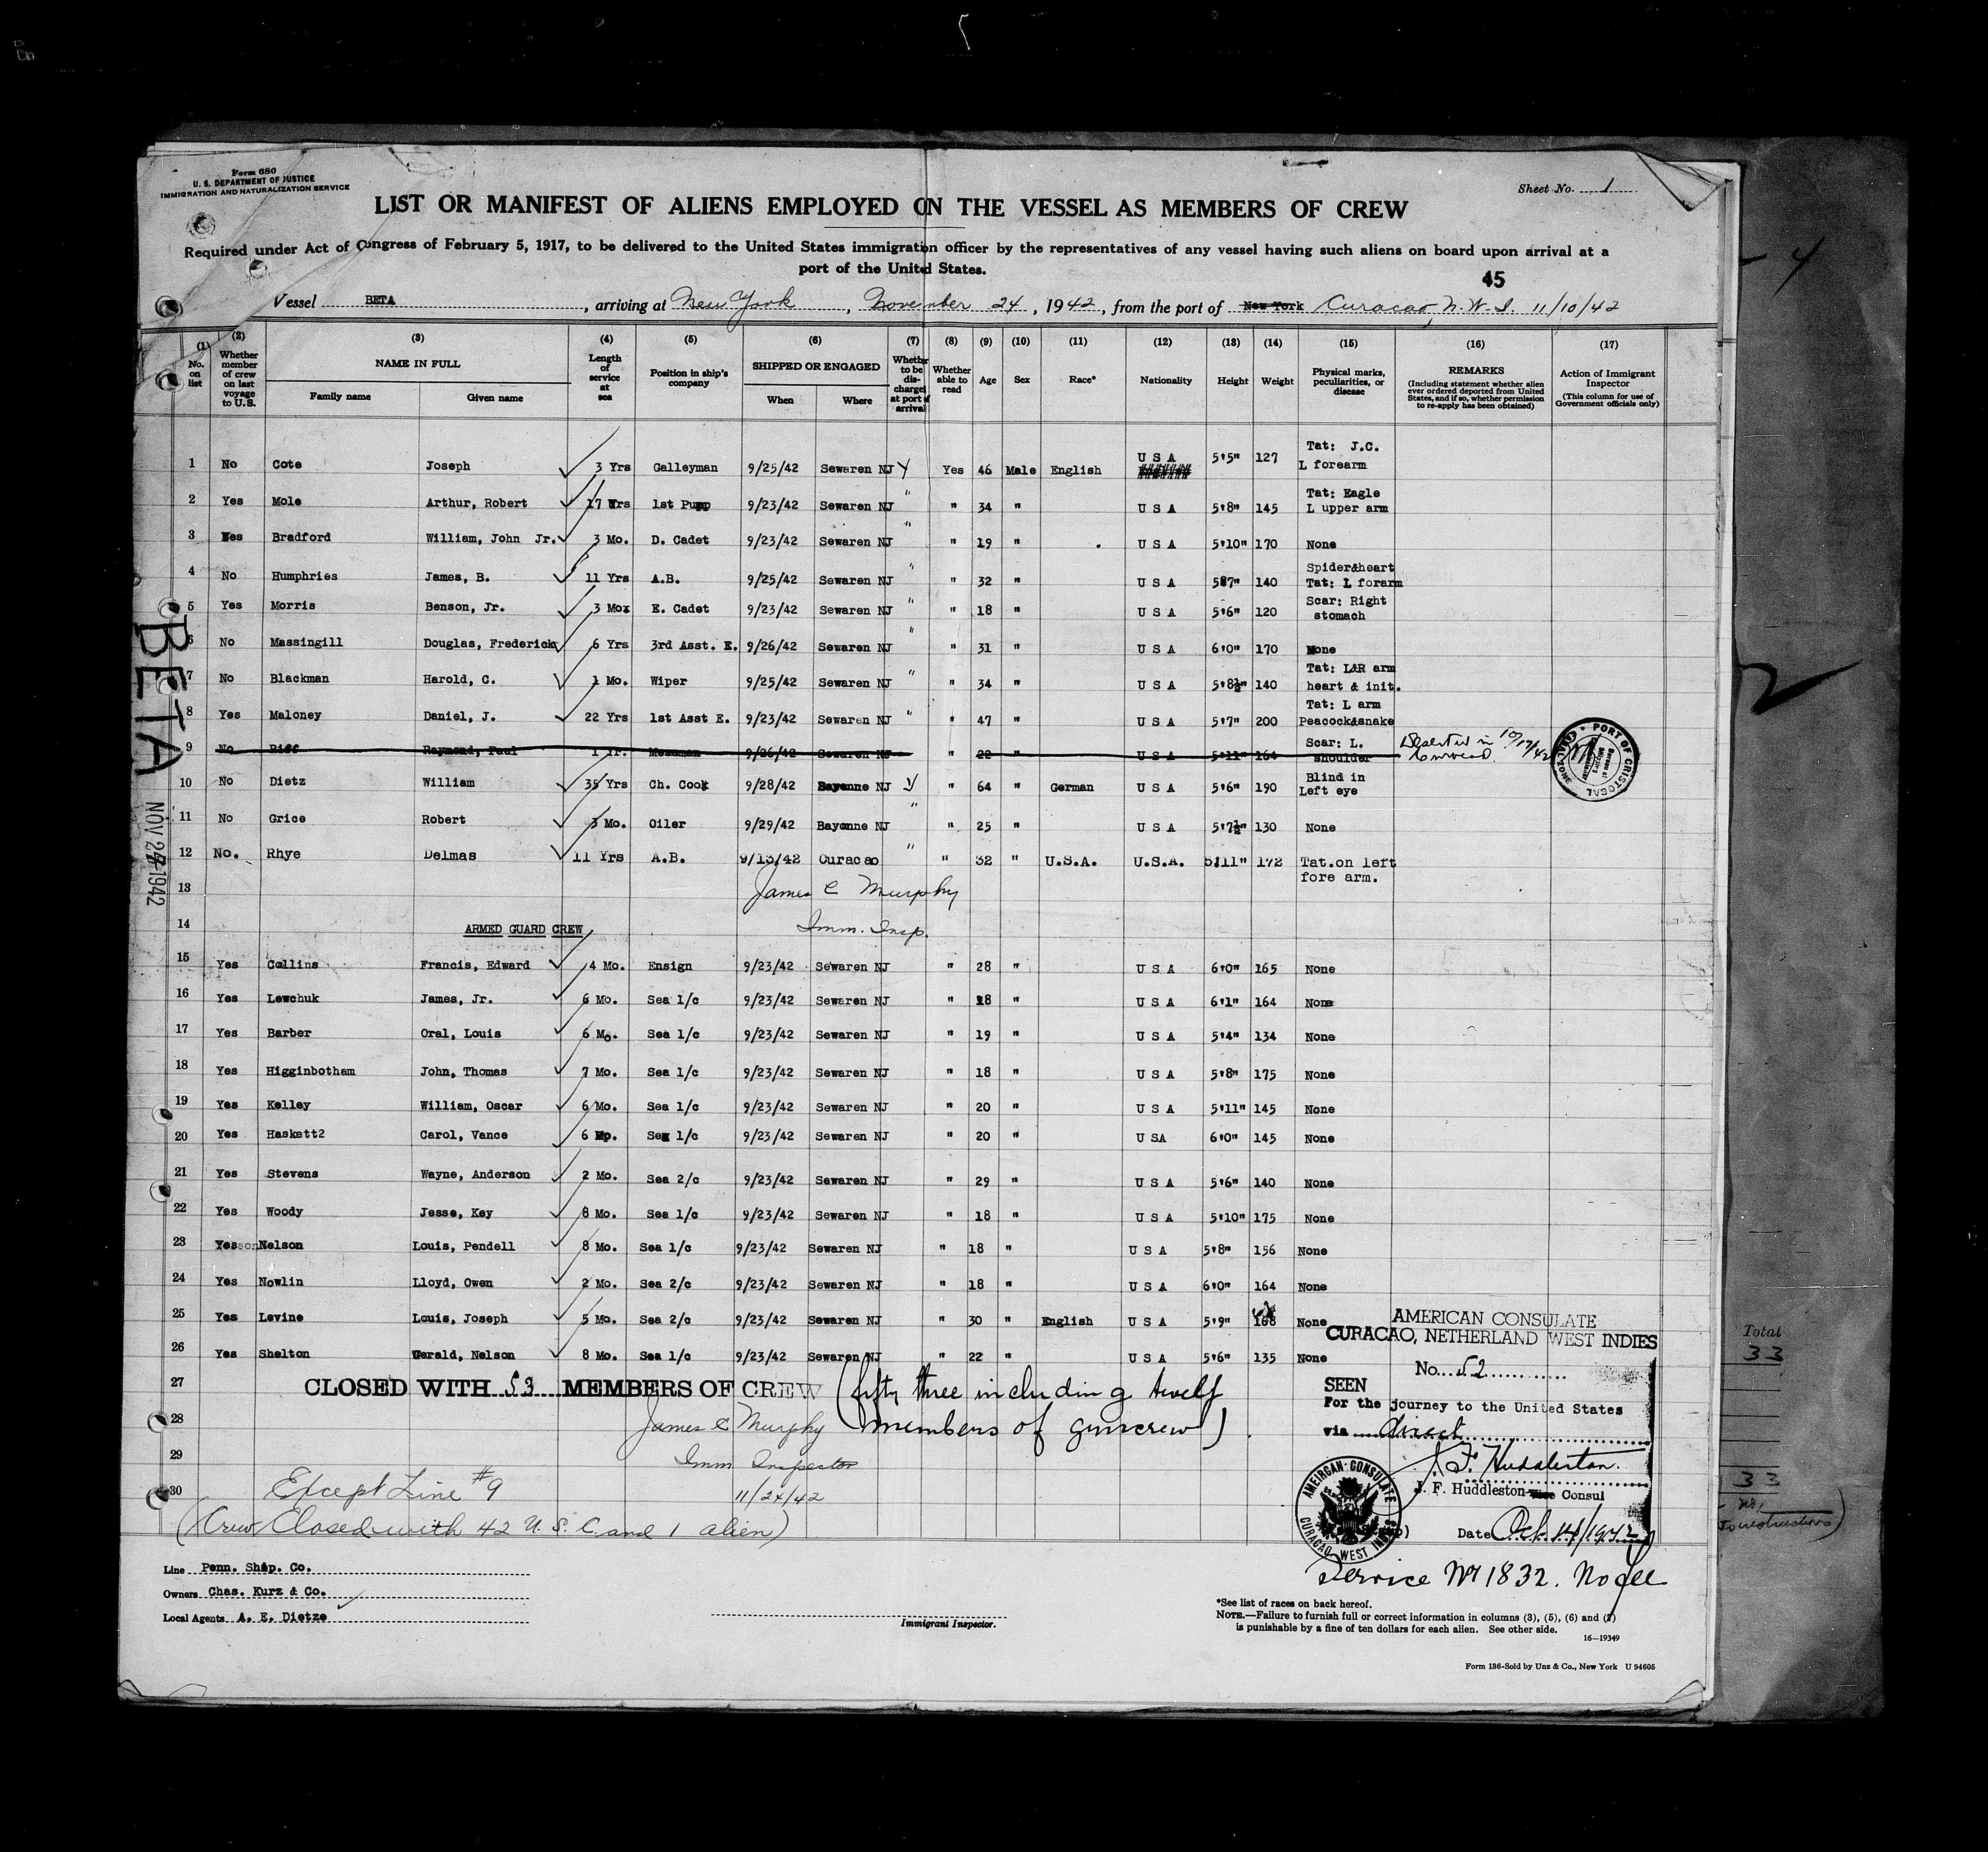 Form 680
U. S. DEPARTMENT OF JUSTICE
IMMIGRATION AND NATURALIZATION SERVICE
Sheet No. 1
LIST OR MANIFEST OF ALIENS EMPLOYED ON THE VESSEL AS MEMBERS OF CREW
Required under Act of Congress of February 5, 1917, to be delivered to the United States immigration officer by the representatives of any vessel having such aliens on board upon arrival at a
port of the United States.
45
Vessel BETA, arriving at New York, November 24, 1942, from the port of New York Curacao, N.W.I. 11/10/42
(1) No. on list (2) Whether member of crew on last voyage to U.S. (3) NAME IN FULL Family name Given name (4) Length of service at sea (5) Position in ship's company (6) SHIPPED OR ENGAGED When Where (7) Whether to be discharged at port of arrival (8) Whether able to read (9) Age (10) Sex (11) Race* (12) Nationality (13) Height (14) Weight (15) Physical marks, peculiarities, or disease (16) REMARKS (Including statement whether alien ever ordered deported from United States, and if so, whether permission to re-apply has been obtained) (17) Action of Immigrant Inspector (This column for use of Government officials only)
1 No Cote Joseph 3 Yrs Galleyman 9/25/42 Sewaren NJ Yes 46 Male English U S A 5'5" 127 Tat: J.C. L forearm
2 Yes Mole Arthur, Robert 17 Yrs 1st Pump 9/23/42 Sewaren NJ " " 34 " U S A 5'8" 145 Tat: Eagle L upper arm
3 Yes Bradford William, John Jr. 3 Mo. D. Cadet 9/23/42 Sewaren NJ " " 19 " U S A 5'10" 170 None
4 No Humphries James, B. 11 Yrs A.B. 9/25/42 Sewaren NJ " " 32 " U S A 587" 140 Spider&heart Tat: L forarm
5 Yes Morris Benson, Jr. 3 Mox E. Cadet 9/23/42 Sewaren NJ " " 18 " U S A 5'6" 120 Scar: Right stomach
6 No Massingill Douglas, Frederick 6 Yrs 3rd Asst. E. 9/26/42 Sewaren NJ " " 31 " U S A 6'0" 170 None
7 No Blackman Harold, C. 1 Mo. Wiper 9/25/42 Sewaren NJ " " 34 " U S A 5'8½" 140 Tat: L&R arm heart & init.
8 Yes Maloney Daniel, J. 22 Yrs 1st Asst E. 9/23/42 Sewaren NJ " " 47 " U S A 5'7" 200 Tat: L arm Peacock&snake
9 No Riff Raymond, Paul 1 Yr. Messman 9/26/42 Sewaren NJ " 22 " U S A 5'11" 164 Scar: L. shoulder Deserted in
PORT OF CRISTOBAL
10 No Dietz William 35 Yrs Ch. Cook 9/28/42 Bayonne NJ " 64 " German U S A 5'6" 190 Blind in Left eye
11 No Grice Robert 3 Mo. Oiler 9/29/42 Bayonne NJ " " 25 " U S A 5'7½" 130 None
12 No. Rhye Delmas 11 Yrs A.B. 9/13/42 Curacao " " 32 " U.S.A. U.S.A. 5'11" 172 Tat.on left fore arm.
13 James C Murphy
14 ARMED GUARD CREW Imm. Insp.
15 Yes Collins Francis, Edward 4 Mo. Ensign 9/23/42 Sewaren NJ " 28 " U S A 6'0" 165 None
16 Yes Lewchuk James, Jr. 6 Mo. Sea 1/c 9/23/42 Sewaren NJ " 18 " U S A 6'1" 164 None
17 Yes Barber Oral, Louis 6 Mo. Sea 1/c 9/23/42 Sewaren NJ " 19 " U S A 5'4" 134 None
18 Yes Higginbotham John, Thomas 7 Mo. Sea 1/c 9/23/42 Sewaren NJ " 18 " U S A 5'8" 175 None
19 Yes Kelley William, Oscar 6 Mo. Sea 1/c 9/23/42 Sewaren NJ " 20 " U S A 5'11" 145 None
20 Yes Haskett2 Carol, Vance 6 Mo. Sea 1/c 9/23/42 Sewaren NJ " 20 " U SA 6'0" 145 None
21 Yes Stevens Wayne, Anderson 2 Mo. Sea 2/c 9/23/42 Sewaren NJ " 29 " U S A 5'6" 140 None
22 Yes Woody Jesse, Key 8 Mo. Sea 1/c 9/23/42 Sewaren NJ " 18 " U S A 5'10" 175 None
23 Yes Nelson Louis, Pendell 8 Mo. Sea 1/c 9/23/42 Sewaren NJ " 18 " U S A 5'8" 156 None
24 Yes Nowlin Lloyd, Owen 2 Mo. Sea 2/c 9/23/42 Sewaren NJ " 18 " U S A 6'0" 164 None
25 Yes Levine Louis, Joseph 5 Mo. Sea 2/c 9/23/42 Sewaren NJ " 30 " English U S A 5'9" 168 None
26 Yes Shelton Gerald, Nelson 8 Mo. Sea 1/c 9/23/42 Sewaren NJ " 22 " U S A 5'6" 135 None
27 CLOSED WITH 53 MEMBERS OF CREW (fifty three including twelf
28 James C Murphy members of guncrew)
29 Imm Inspector
30 Except Line #9 11/24/42
(Crew Closed with 42 U.S.C. and 1 alien)
AMERICAN CONSULATE
CURACAO, NETHERLAND WEST INDIES
No. 52
SEEN
For the journey to the United States
via direct
J. F. Huddleston
J. F. Huddleston Vice Consul
Date Oct. 14/1942
AMERICAN CONSULATE CURACAO, WEST INDIES
Service No 1832. No fee
Line Penn. Ship. Co.
Owners Chas. Kurz & Co.
Local Agents A. E. Dietze
Immigrant Inspector.
*See list of races on back hereof.
NOTE.—Failure to furnish full or correct information in columns (3), (5), (6) and (7)
is punishable by a fine of ten dollars for each alien. See other side.
16—19349
Form 136-Sold by Unz & Co., New York U 94605
BETA
NOV 24 1942
4
2
Total
33
33